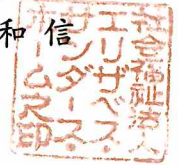 和信
社会福祉法人
エリザベス・
サンダース・
ホーム之印